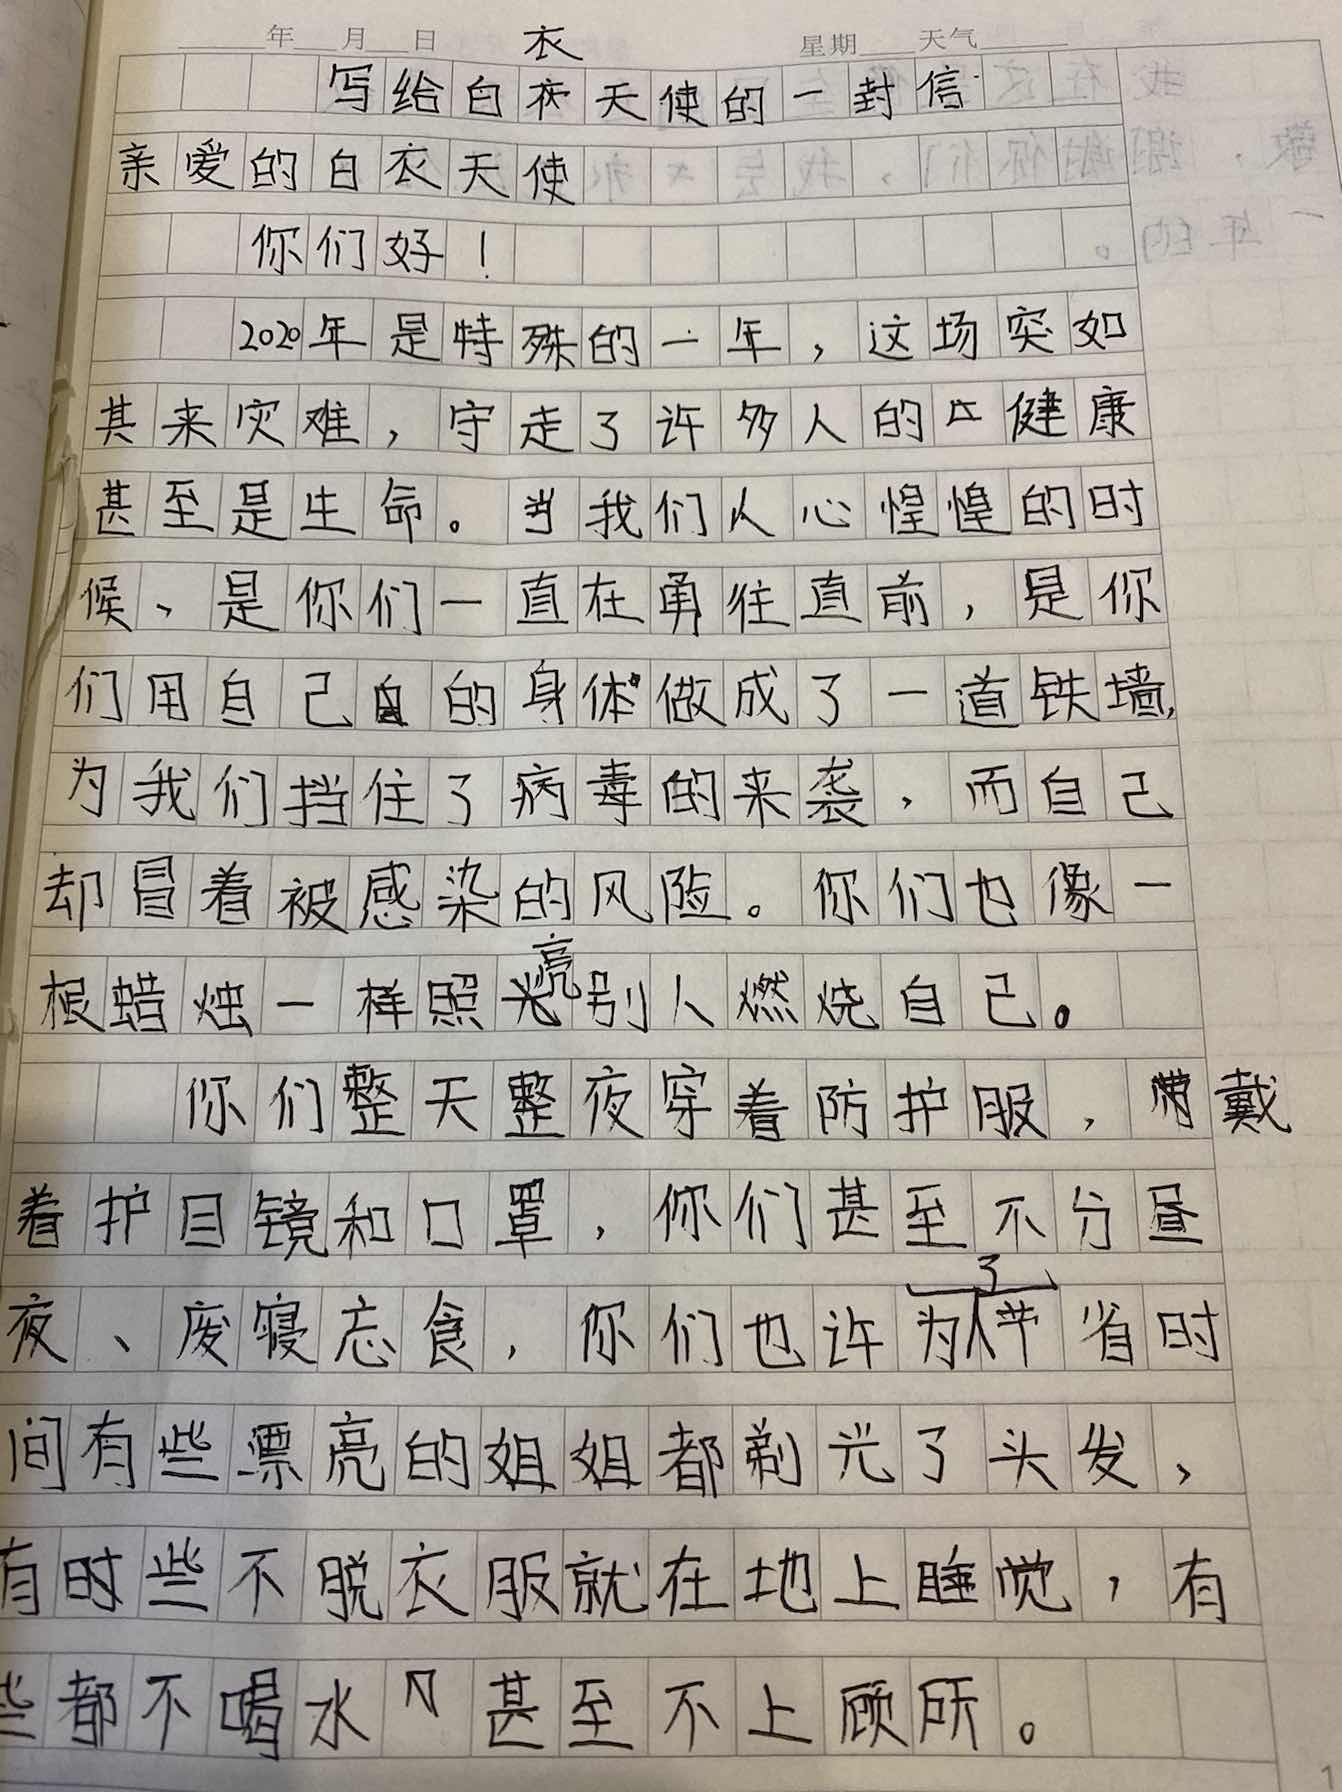 年 月 日 星期 天气
写给白衣天使的一封信
亲爱的白衣天使
你们好！
2020年是特殊的一年，这场突如
其来灾难，守走了许多人的健康
甚至是生命。当我们人心惶惶的时
候、是你们一直在勇往直前，是你
们用自己的身体做成了一道铁墙，
为我们挡住了病毒的来袭，而自己
却冒着被感染的风险。你们也像一
根蜡烛一样照亮别人燃烧自己。
你们整天整夜穿着防护服，戴
着护目镜和口罩，你们甚至不分昼
夜、废寝忘食，你们也许为了节省时
间有些漂亮的姐姐都剃光了头发，
有时些不脱衣服就在地上睡觉，有
些都不喝水甚至不上顾所。